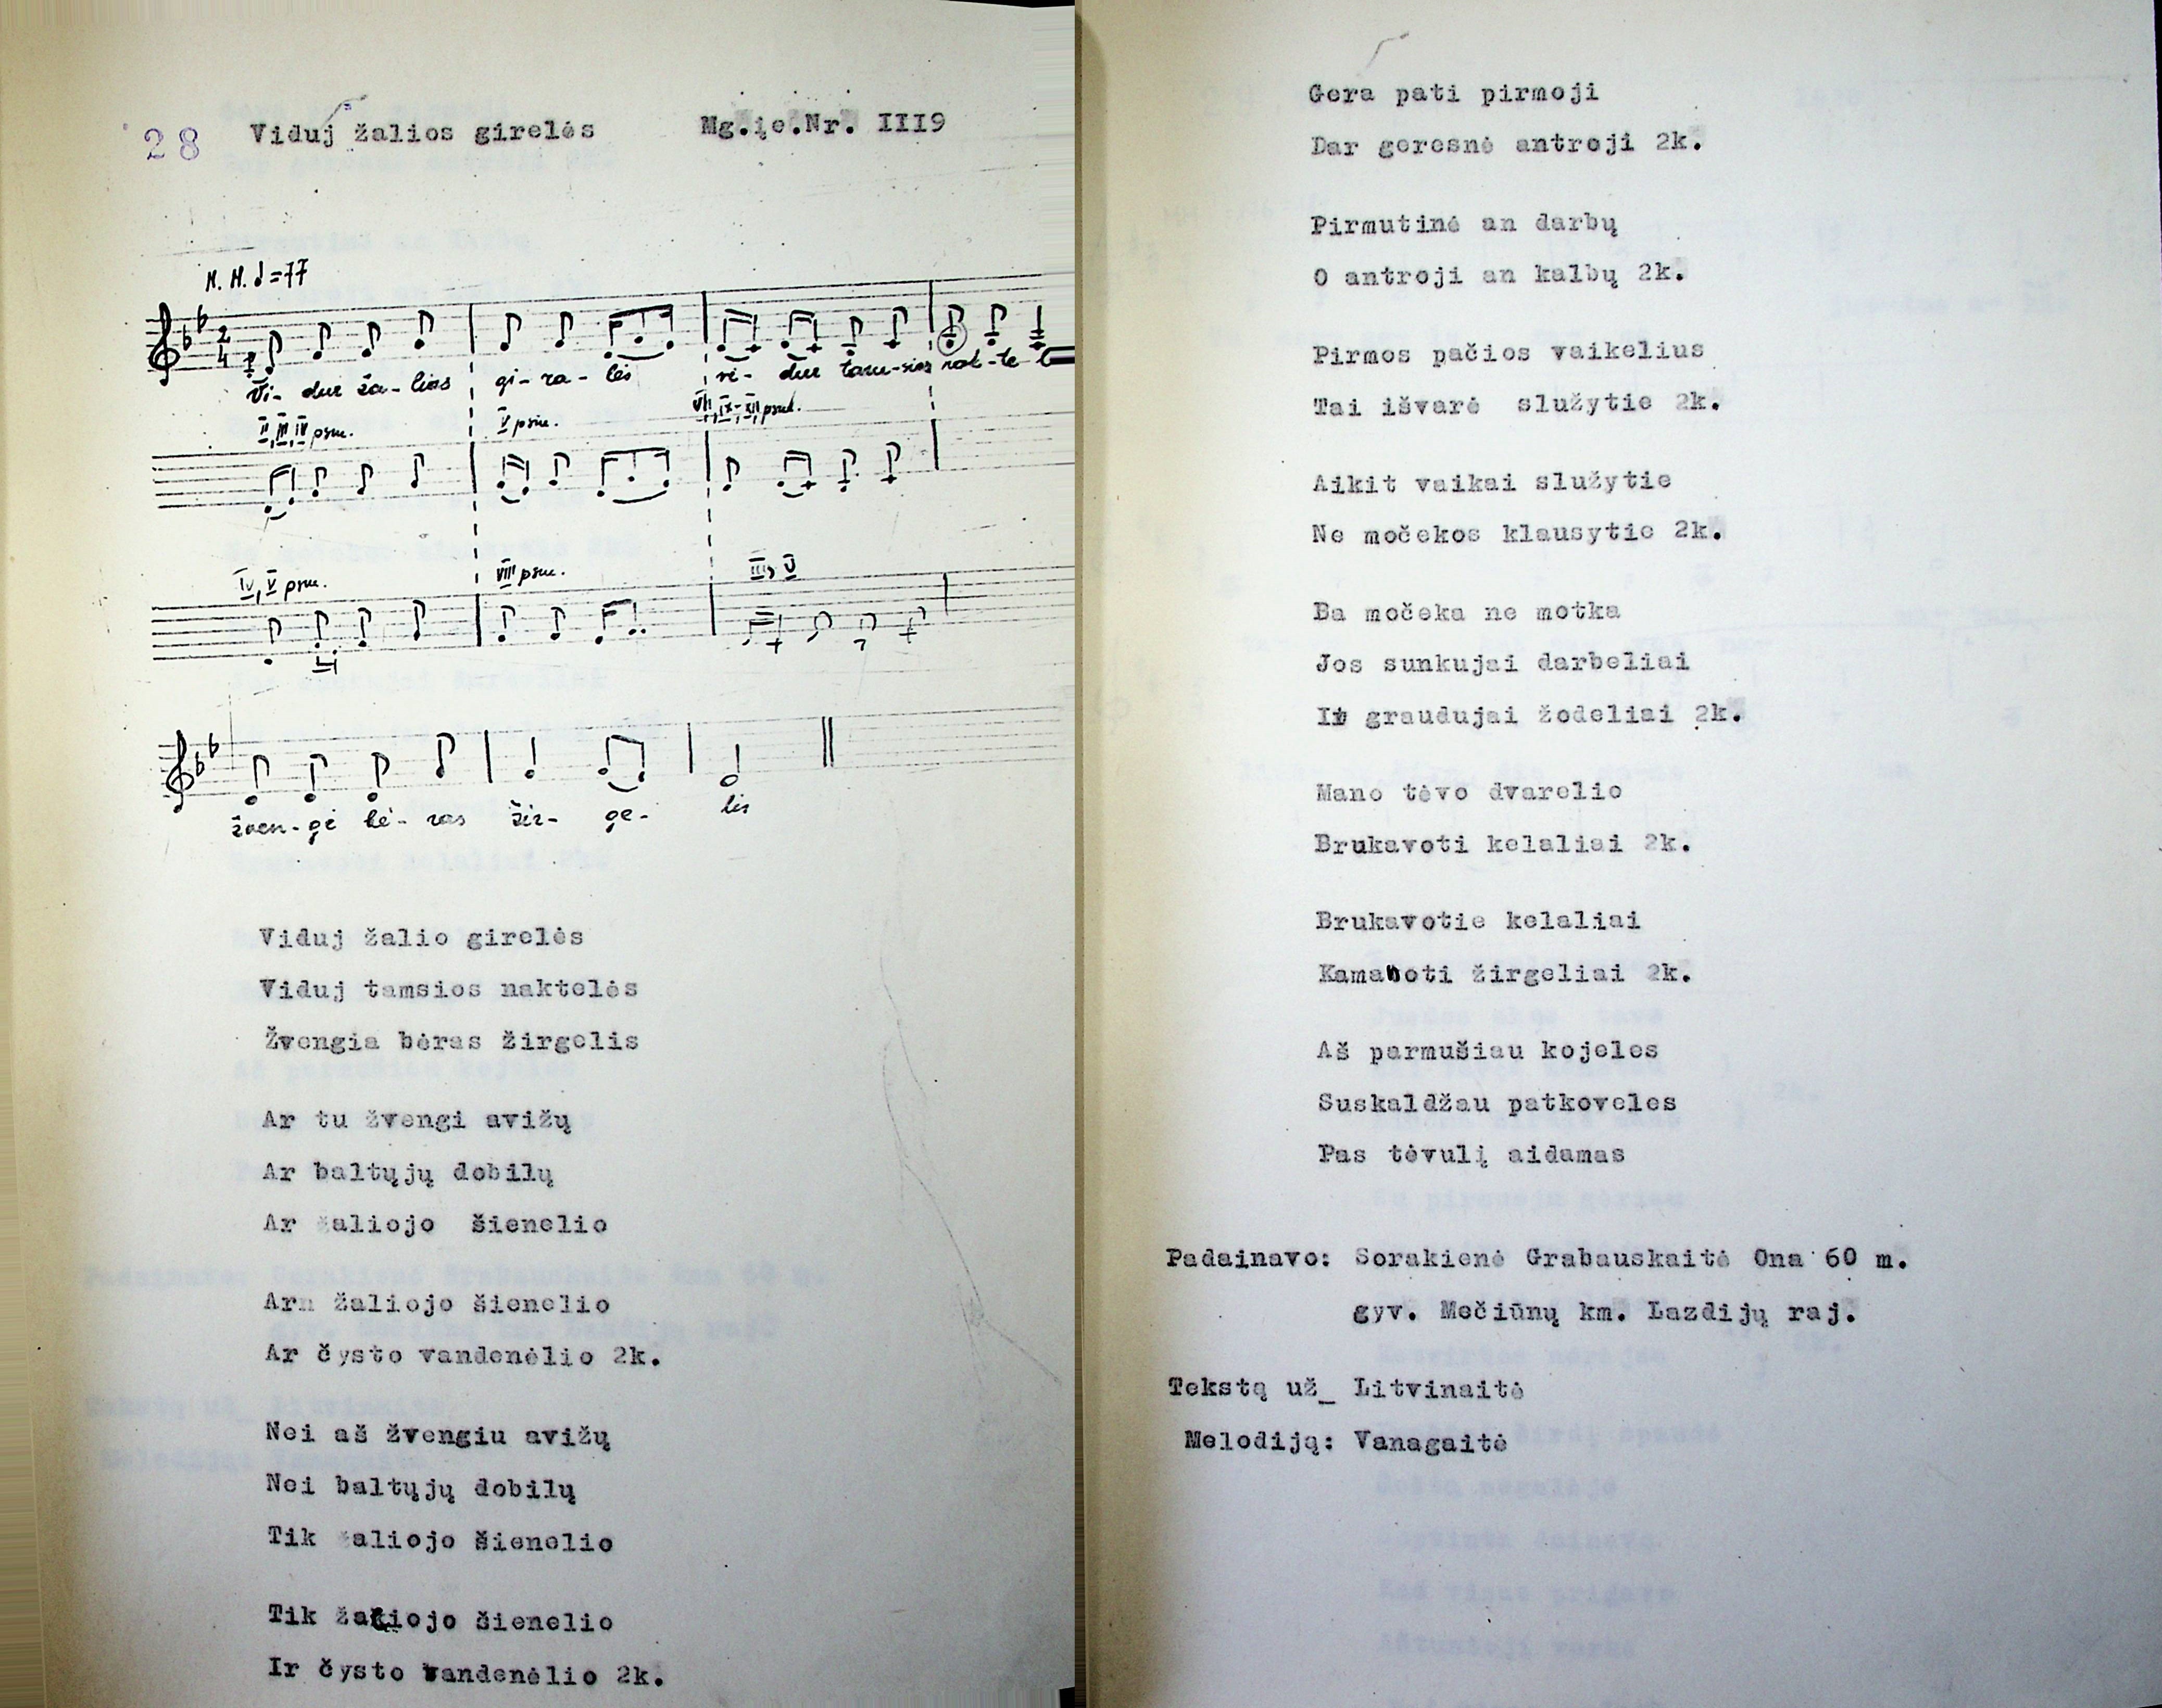 28 Viduj žalios girelės Mg.įe.Nr. III9
M. M. ♩ =77
Vi- dur ža- lios gi- ra- lės vi- dur tamsios nak-te
II, III, IV psm. V psm. VII, IX-XII psm.
IV, V psm. VIII psm. III, V
žven- gė bė- ras žir- ge- lis
Viduj žalio girelės
Viduj tamsios naktelės
Žvengia bėras žirgelis
Ar tu žvengi avižų
Ar baltųjų dobilų
Ar žaliojo šienelio
Arn žaliojo šienelio
Ar čysto vandenėlio 2k.
Nei aš žvengiu avižų
Nei baltųjų dobilų
Tik žaliojo šienelio
Tik žaliojo šienelio
Ir čysto vandenėlio 2k.
Gera pati pirmoji
Dar geresnė antroji 2k.
Pirmutinė an darbų
O antroji an kalbų 2k.
Pirmos pačios vaikelius
Tai išvarė služytie 2k.
Aikit vaikai služytie
Ne močekos klausytie 2k.
Ba močeka ne motka
Jos sunkujai darbeliai
Ir graudujai žodeliai 2k.
Mano tėvo dvarelio
Brukavoti kelaliai 2k.
Brukavotie kelaliai
Kamanoti žirgeliai 2k.
Aš parmušiau kojeles
Suskaldžau patkoveles
Pas tėvulį aidamas
Padainavo: Sorakienė Grabauskaitė Ona 60 m.
gyv. Mečiūnų km. Lazdijų raj.
Tekstą už_ Litvinaitė
Melodiją: Vanagaitė